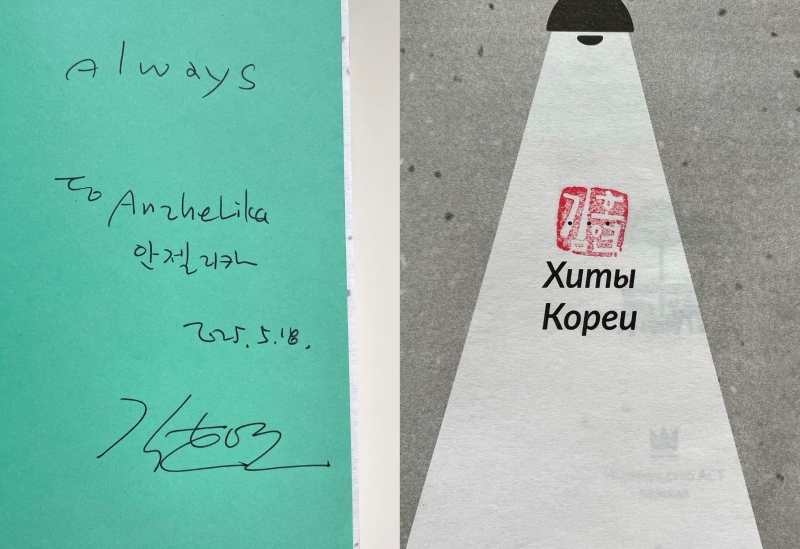 Always
To Anzhelika
안젤리카
2025. 5. 18.
김호연
김호연
Хиты
Кореи